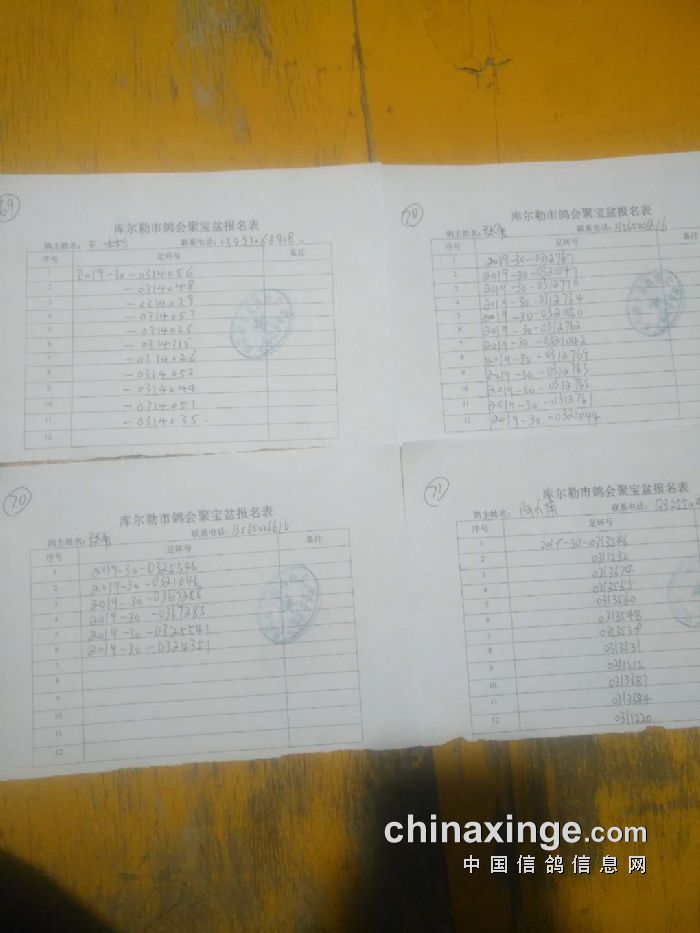 69
库尔勒市鸽会聚宝盆报名表
鸽主姓名: 王 联系电话:
序号 足环号 备注
1 2019-30-0314056
2 -0314048
3 -0314039
4 -0314057
5 -0314025
6 -0314115
7 -0314026
8 -0314052
9 -0314044
10 -0314051
11 -0314035.
12
70
库尔勒市鸽会聚宝盆报名表
鸽主姓名: 联系电话:
序号 足环号 备注
1 2019-30-0312767
2 2019-30-0321047
3 2019-30-0312770
4 2019-30-0312764
5 2019-30-0321050
6 2019-30-0312762
7 2019-30-0321042
8 2019-30-0312769
9 2019-30-0312763
10 2019-30-0312765
11 2019-30-0312761
12 2019-30-0321044
70
库尔勒市鸽会聚宝盆报名表
鸽主姓名: 联系电话:
序号 足环号 备注
1 2019-30-0325546
2 2019-30-0321046
3 2019-30-0367288
4 2019-30-0367285
5 2019-30-0325541
6 2019-30-0324351
7
8
9
10
11
12
71
库尔勒市鸽会聚宝盆报名表
鸽主姓名: 联系电话:
序号 足环号
1 2019-30-0313546
2 0311232
3 0313674
4 0313555
5 0313560
6 0313548
7 0313534
8 0313531
9 0311212
10 0313687
11 0313684
12 0311220
chinaxinge.com
中国信鸽信息网